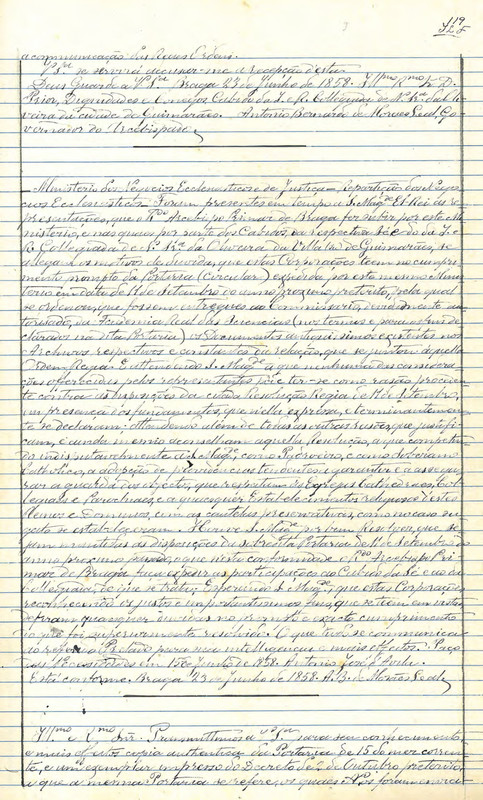 119
a communicação das Reaes Ordens.
V. S.ª se servirá accusar-me a recepção d'esta.
Deus Guarde a V. S.ª Braga 23 de Junho de 1858. Ill.mos R.mos S.
Prior, Dignidades e Conegos Cabido da I. e R. Collegiada de N. Sr.ª da Oli-
veira da cidade de Guimarães. Antonio Bernardo de Moraes Leal, Go-
vernador do Arcebispado,
Ministerio dos Negocios Ecclesiasticos e de Justiça - Repartição dos Nego-
cios Ecclesiasticos - Foram presentes em tempo a S. Mag.de El-Rei as re-
presentações, que o R.do Arcebispo Primaz de Braga fez subir por este Mi-
nisterio, e nas quaes por parte dos Cabidos, da respectiva Sé e do da I. e
R. Collegiada de N. Sr.ª da Oliveira da Villa de Guimarães, se
allegam os motivos de duvidas, que estas Corporações teem no cumpri-
mento prompto da Portaria (Circular) expedida por este mesmo Minis-
terio em data de 11 de Setembro do anno proximo preterito, pela qual
se ordenou, que fossem entregues ao Commissario, devidamente au-
torisado, da Academia Real das Sciencias (nos termos e para os fins de-
clarados na dita Portaria) os Documentos antiquissimos existentes nos
Archivos respectivos e constantes da relação, que se juntou áquella
Ordem Regia. E attendendo S. Mag.de a que nenhuma das considera-
ções offerecidas pelos representantes pode ter-se como rasão proceden-
te contra as disposições da citada Resolução Regia de 11 de Setembro,
em presença dos fundamentos, que n'ella expressa, e terminantemen-
te se declaram: Attendendo além de todas as outras rasões, que justifi-
cam, e ainda mesmo aconselham aquella Resolução, a que compete de
vidas naturalmente a S. Mag.de, como Padroeiro, e como Soberano
Catholico, a adopção de providencias tendentes a garantir e a assegu-
rar a guarda dos objectos, que respeitam ás Egrejas Cathedraes, Col-
legiaes e Parochiaes, e a quaesquer Estabelecimentos religiosos d'estes
Reinos e Dominios, com as cautelas preservativas, como no caso su-
jeito se estabeleceram. Houve S. Mag.de por bem Resolver, que se-
jam mantidas as disposições da sobredita Portaria de 11 de Setembro do
anno proximo passado, e que n'esta conformidade o R.do Arcebispo Pri-
maz de Braga faça expedir as participações ao Cabido da Sé e ao da
Collegiada, de que se trata; Esperando S. Mag.de, que estas Corporações
reconhecendo os justos e os prudentissimos fins, que se teem em vista,
defiram quaesquer duvidas no prompto e exacto cumprimento
do que foi superiormente resolvido. O que tudo se communica
ao referido Prelado para sua intelligencia e mais effeitos. Paço
das Necessidades em 15 de Junho de 1858. Antonio José d'Avila.
Está conforme. Braga 23 de Junho de 1858. A. B. de Moraes Leal.
Ill.mo e R.mo Snr. Transmittimos a V. S.ª para seu conhecimento
e mais effeitos copia authentica da Portaria de 15 do mez corren-
te, e um exemplar impresso do Decreto de 2 de Outubro preterito,
a que a mesma Portaria se refere, os quaes nos foram envia-